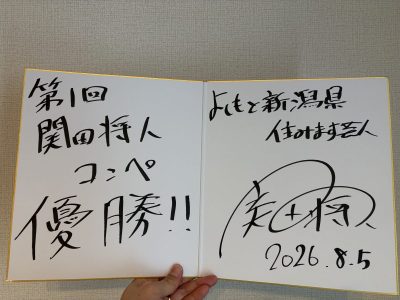 第1回
関田将人
コンペ
優勝!!
よしもと新潟県
住みます芸人
関田将人
2026.8.5